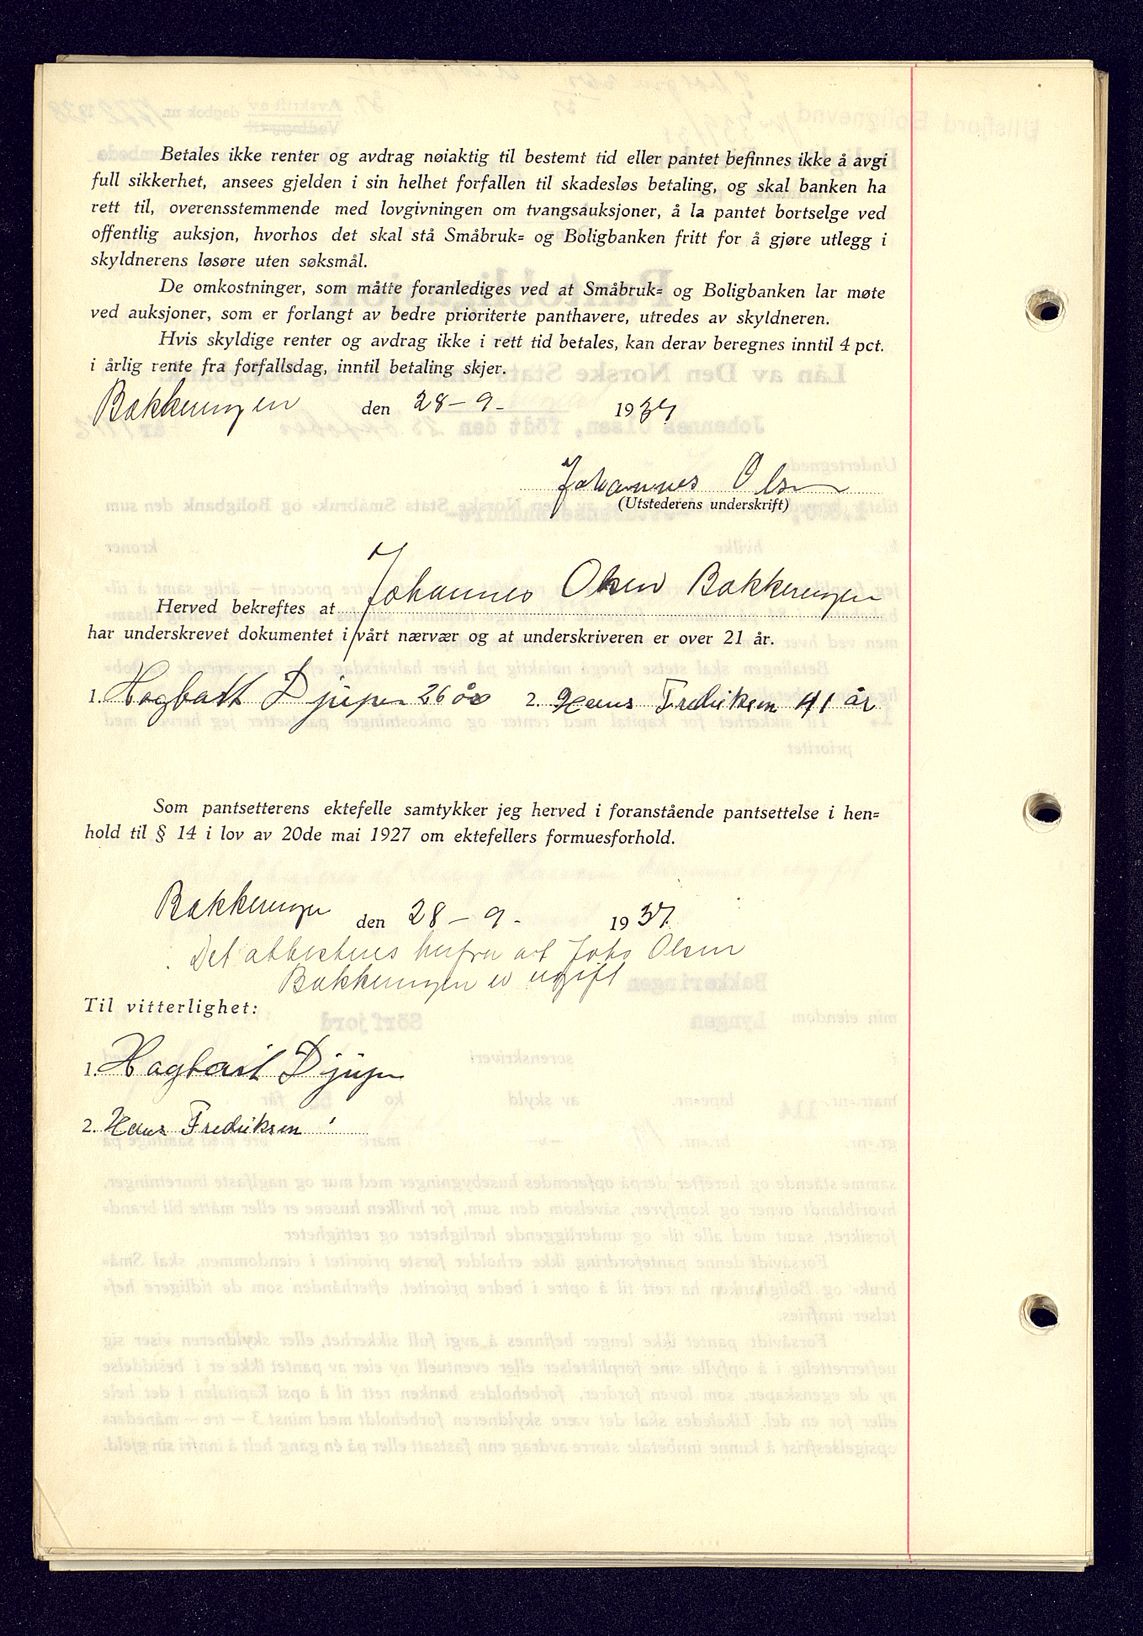 Betales ikke renter og avdrag nøiaktig til bestemt tid eller pantet befinnes ikke å avgi
full sikkerhet, ansees gjelden i sin helhet forfallen til skadesløs betaling, og skal banken ha
rett til, overensstemmende med lovgivningen om tvangsauksjoner, å la pantet bortselge ved
offentlig auksjon, hvorhos det skal stå Småbruk= og Boligbanken fritt for å gjøre utlegg i
skyldnerens løsøre uten søksmål.
De omkostninger, som måtte foranlediges ved at Småbruk= og Boligbanken lar møte
ved auksjoner, som er forlangt av bedre prioriterte panthavere, utredes av skyldneren.
Hvis skyldige renter og avdrag ikke i rett tid betales, kan derav beregnes inntil 4 pct.
i årlig rente fra forfallsdag, inntil betaling skjer.
Bakkeringen den 28-9- 1937
Johannes Olsen
(Utstederens underskrift)
Herved bekreftes at Johannes Olsen Bakkeringen
har underskrevet dokumentet i vårt nærvær og at underskriveren er over 21 år.
1. Hagbart Djupen 26 år 2. Hans Fredriksen 41 år
Som pantsetterens ektefelle samtykker jeg herved i foranstående pantsettelse i hen=
hold til § 14 i lov av 20de mai 1927 om ektefellers formuesforhold.
Bakkeringen den 28-9- 1937.
Det attesteres herfra at Johs Olsen
Bakkeringen er ugift
Til vitterlighet:
1. Hagbart Djupen
2. Hans Fredriksen